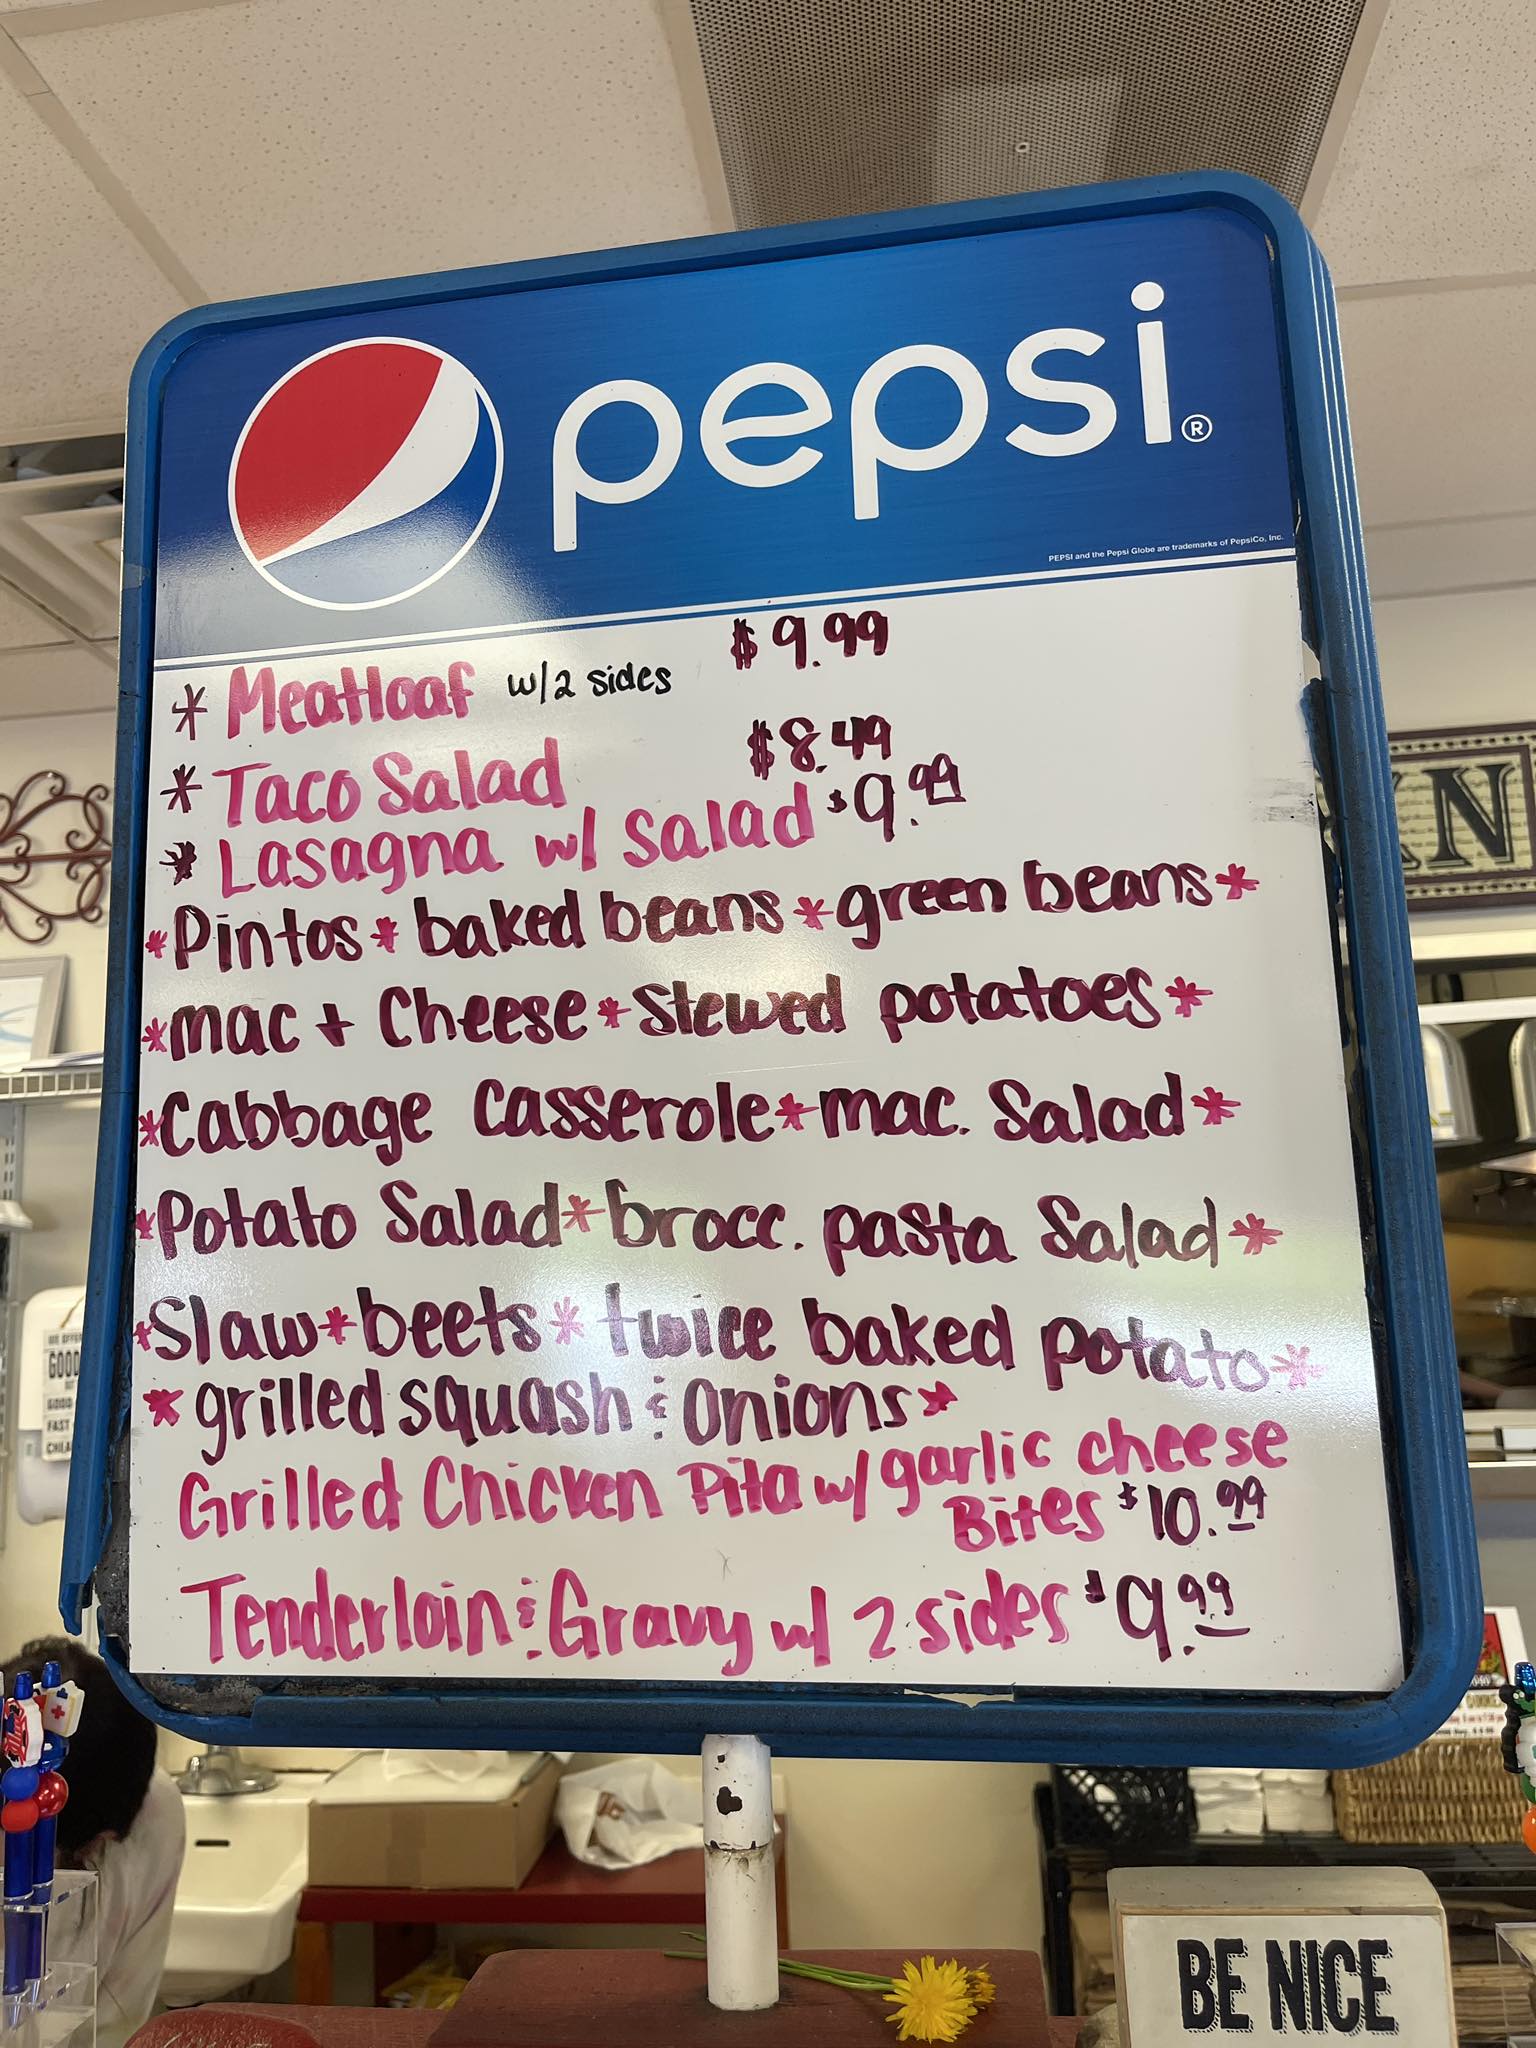 pepsi®
PEPSI and the Pepsi Globe are trademarks of PepsiCo, Inc.
* Meatloaf w/2 sides $9.99
* Taco Salad $8.49
* Lasagna w/ Salad $9.99
*Pintos*baked beans*green beans*
*mac + Cheese*Stewed potatoes*
*Cabbage Casserole*mac. Salad*
*Potato Salad*brocc. pasta Salad*
*Slaw*beets*twice baked potato*
*grilled squash & Onions*
Grilled Chicken Pita w/ garlic cheese
Bites $10.99
Tenderloin & Gravy w/ 2 sides $9.99
GOOD
GOOD
FAST
BE NICE